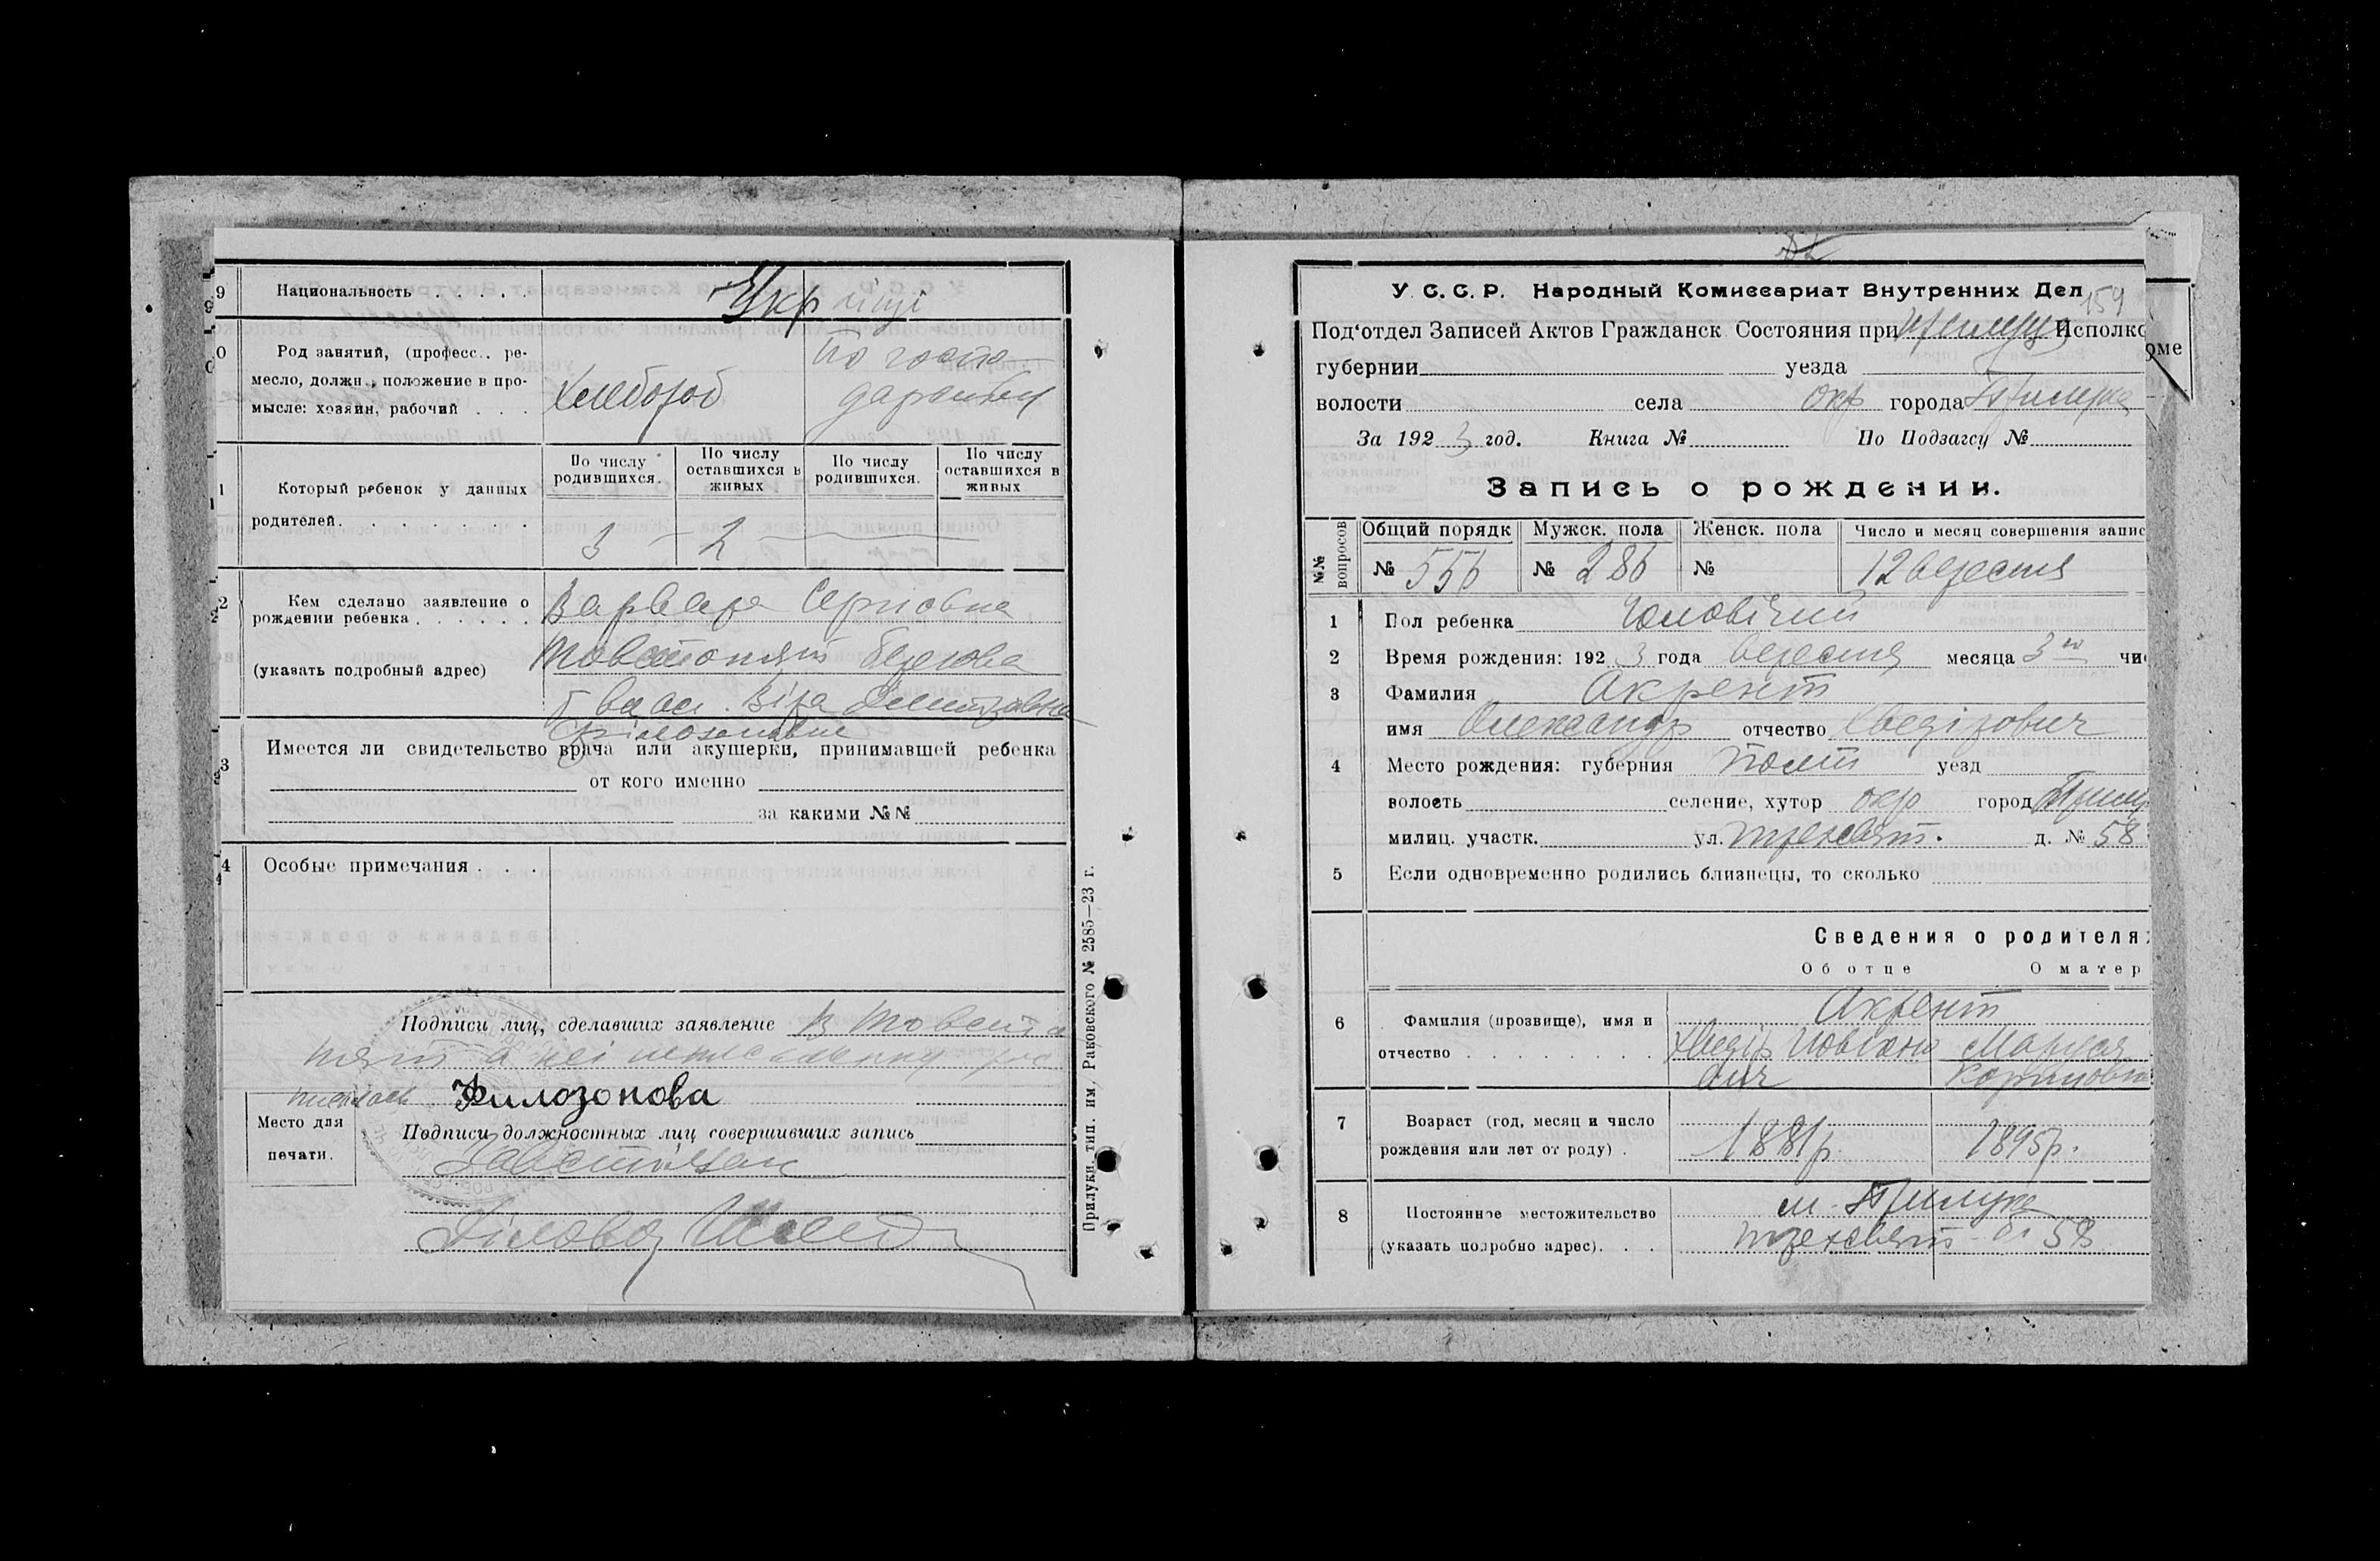 9 Национальность . . . . . Українці
Род занятий, (професс., ре-
месло, должн., положение в про-
мысле: хозяин, рабочий . . .
Хлебороб
По госпо-
дарству
По числу родившихся.
По числу оставшихся в живых
По числу родившихся.
По числу оставшихся в живых
Который ребенок у данных
родителей. . . . . . .
3 — 2
Кем сделано заявление о
рождении ребенка . . . . . .
(указать подробный адрес)
Варвара
Товстопят
Віра
Имеется ли свидетельство врача или акушерки, принимавшей ребенка
от кого именно
за какими №№
Особые примечания . . .
Подписи лиц, сделавших заявление В Товсто
пят а неї
Филозопова
Место для
печати.
Подписи должностных лиц совершивших запись
Діловод
Прилуки, тип. им. Раковского № 2585—23 г.
159
У. С. С. Р. Народный Комиссариат Внутренних Дел
Под'отдел Записей Актов Гражданск Состояния при Исполко
оме
губернии уезда
волости села окр города Прилука
За 192 3 год. Книга № По Подзагсу №
Запись о рождении.
№№ вопросов
Общий порядк Мужск. пола Женск. пола Число и месяц совершения запис
№ 556 № 286 № 12 вересня
1 Пол ребенка Чоловічий
2 Время рождения: 192 3 года вересня месяца 3го чи
3 Фамилия Акрент
имя Олександр отчество Хведірович
4 Место рождения: губерния Полт уезд
волость селение, хутор окр город Прилу
милиц. участк. ул. Трехсвят. д. № 58
5 Если одновременно родились близнецы, то сколько
Сведения о родителя
Об отце О матер
6 Фамилия (прозвище), имя и
отчество . . . . . . . .
Акрент
Хведір Маруся
7 Возраст (год, месяц и число
рождения или лет от роду) .
1881р. 1895р.
8 Постоянное местожительство
(указать подробно адрес). . .
м. Прилука
Трехсвят. 58